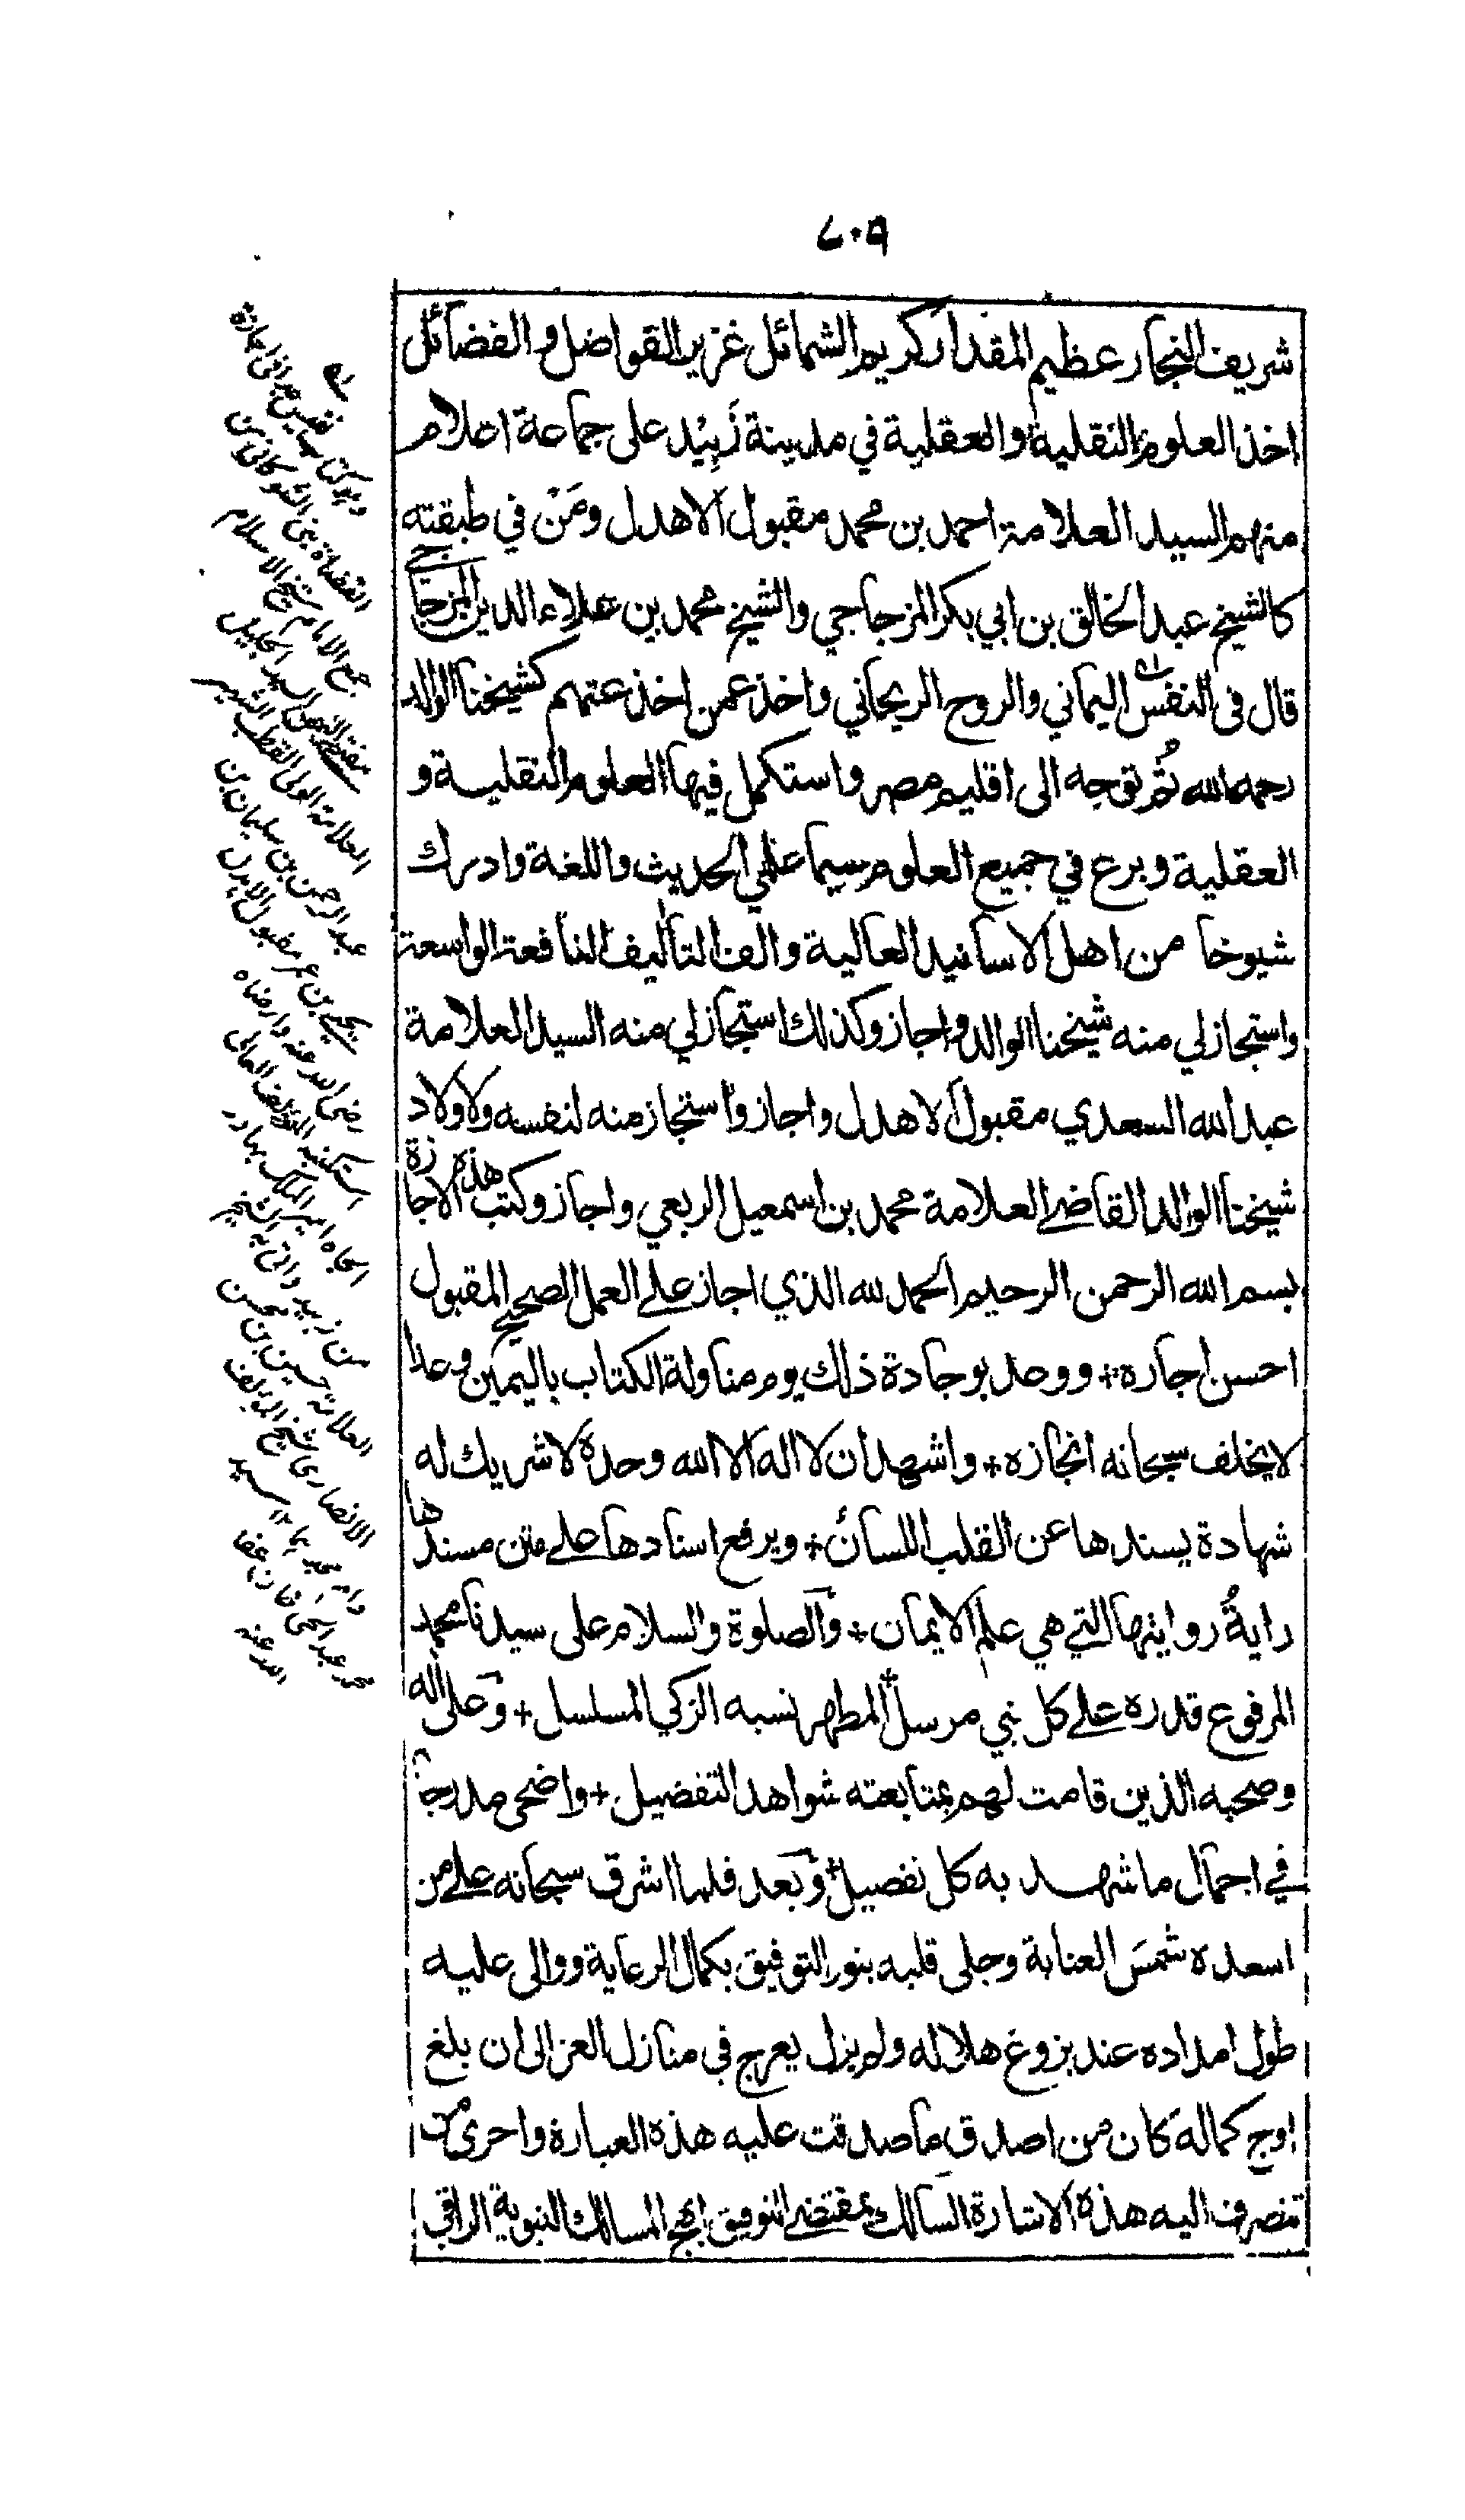 ٧٠٩
شريف النجار عظيم المقدار كريم الشمائل غزير الفواضل والفضائل
اخذ العلوم النقلية والعقلية في مدينة زَبِيْد على جماعة اعلام
منهم السيد العلامة احمد بن محمد مقبول الاهدل ومَنْ في طبقته
كالشيخ عبد الخالق بن ابي بكر المزجاجي والشيخ محمد بن علاء الدين المزجاجي
قال في النفس اليماني والروح الريحاني واخذ عمن اخذ عنهم كشيخنا الوالد
رحمه الله ثُم توجه الى اقليم مصر واستكمل فيها العلوم النقلية و
العقلية وبرع في جميع العلوم سيما علمي الحديث واللغة وادرك
شيوخا من اهل الاسانيد العالية والف التأليف النافعة الواسعة
واستجاز لي منه شيخنا الوالد واجاز وكذلك استجاز لي منه السيد العلامة
عبد الله السعدي مقبول الاهدل واجاز واستجاز منه لنفسه ولاولاد
شيخنا الوالد القاضي العلامة محمد بن اسمعيل الربعي واجاز وكتب هذه الاجازة
بسم الله الرحمن الرحيم الحمد لله الذي اجاز على العمل الصحيح المقبول
احسن اجازه + ووعد بوجادة ذلك يوم مناولة الكتاب باليمين وعدا
لا يخلف سبحانه انجازه + واشهد ان لا اله الا الله وحده لا شريك له
شهادة يسندها عن القلب اللسان + ويرفع اسنادها على متن مسندها
رايةُ روايتها التي هي علم الايمان + والصلوة والسلام على سيدنا محمد
المرفوع قدره على كل نبي مرسل المطهر نسبه الزكي المسلسل + وعلى اله
وصحبه الذين قامت لهم بمتابعته شواهد التفضيل + واضحى مدرجا
في اجمال ما شهد به كل تفصيل + وبعد فلما اشرق سبحانه على من
اسعده شمسَ العناية وجلى قلبه بنور التوفيق بكمال الرعاية ووالى عليه
طول امداده عند بزوغ هلاله ولم يزل يعرج في منازل العز الى ان بلغ
اوج كماله كان من اصدق ما صدقت عليه هذه العبارة واحرى من
تنصرف اليه هذه الاشارة السالك بمقتضى التوفيق انهج المسالك النبوية الراقي
القضاة بني الشوكاني من
جمع الامام شيخ الاسلام
مفتي اليمن السيد الجليل
العلامة الولي القطب الشهير
عبد الرحمن بن سليمان بن
يحيى بن عمر مقبول الاهدل
رضي الله عنه وارضاه
استكتبه الشريف العالي
الجاه امير الملك بهادر
من زبيد واتى به الشيخ
العلامة حسين بن محسن
الانصاري
عبد الحي خان عفا
الله عنه